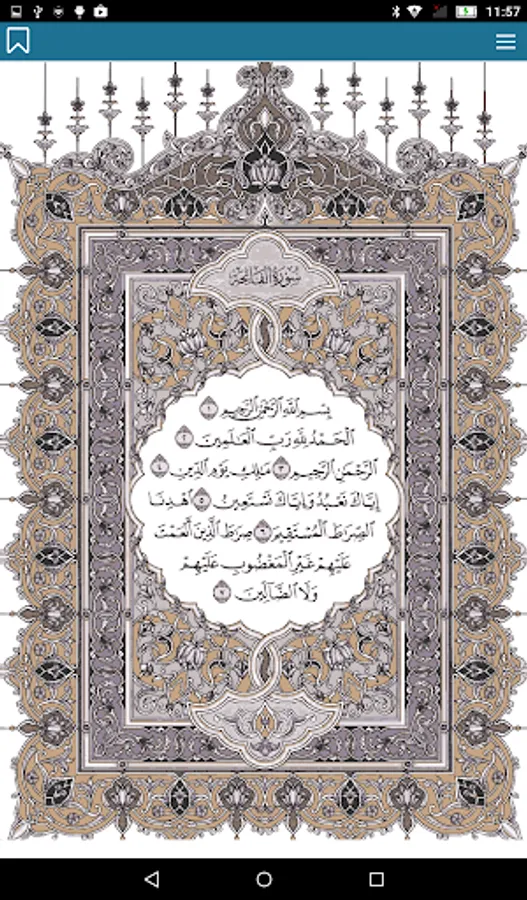 11:57
سورة الفاتحة
بِسْمِ ٱللَّهِ ٱلرَّحْمَٰنِ ٱلرَّحِيمِ ١
ٱلْحَمْدُ لِلَّهِ رَبِّ ٱلْعَٰلَمِينَ ٢
ٱلرَّحْمَٰنِ ٱلرَّحِيمِ ٣ مَٰلِكِ يَوْمِ ٱلدِّينِ ٤
إِيَّاكَ نَعْبُدُ وَإِيَّاكَ نَسْتَعِينُ ٥ ٱهْدِنَا
ٱلصِّرَٰطَ ٱلْمُسْتَقِيمَ ٦ صِرَٰطَ ٱلَّذِينَ أَنْعَمْتَ
عَلَيْهِمْ غَيْرِ ٱلْمَغْضُوبِ عَلَيْهِمْ
وَلَا ٱلضَّآلِّينَ ٧